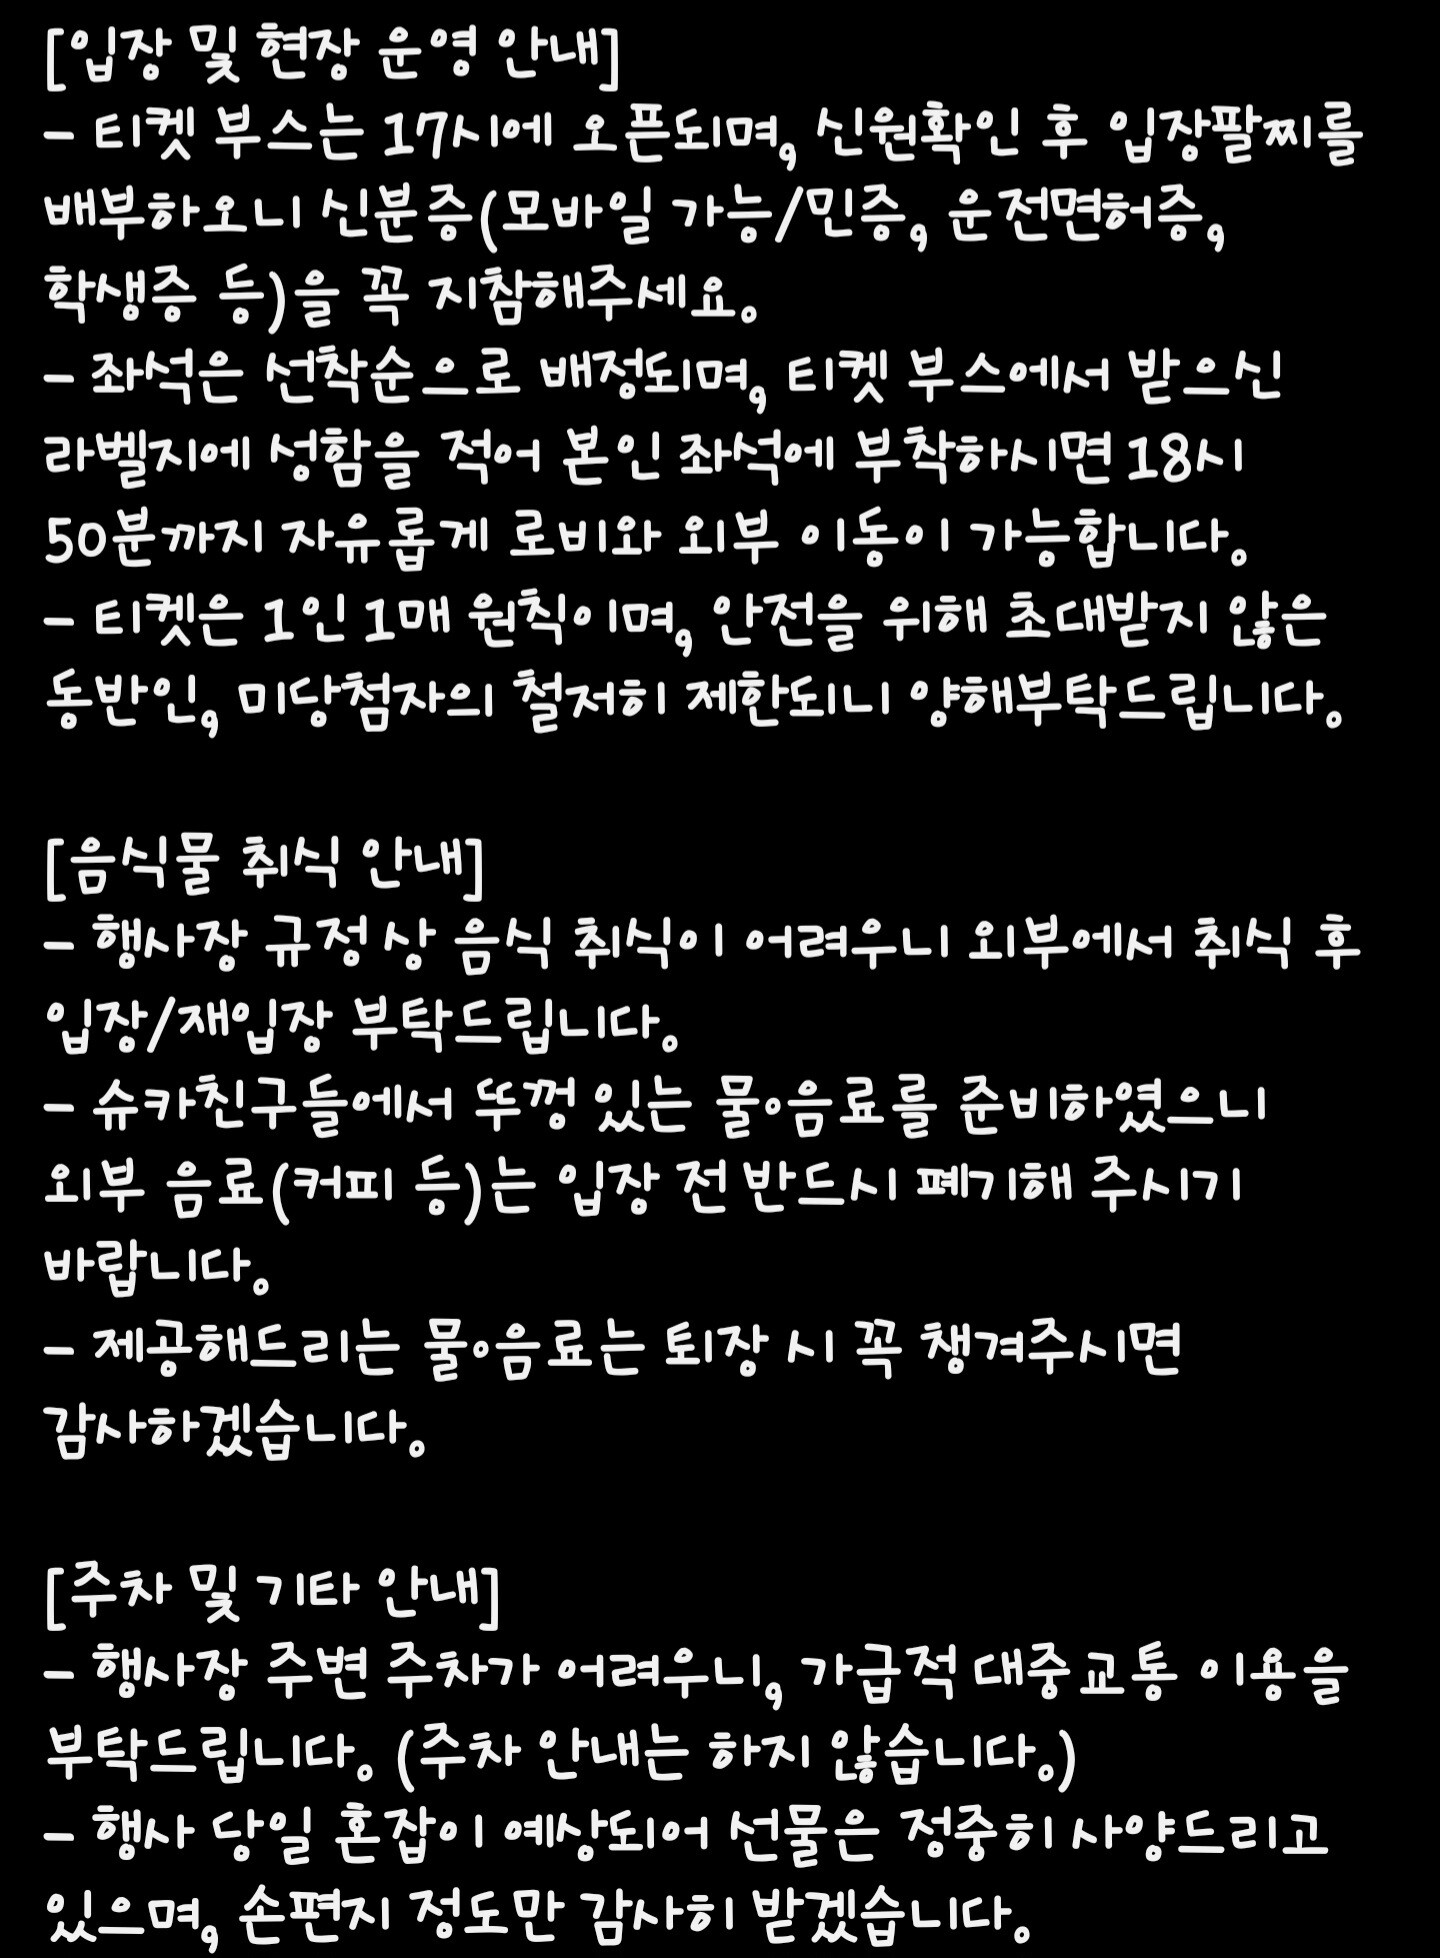 [입장 및 현장 운영 안내]
- 티켓 부스는 17시에 오픈되며, 신원확인 후 입장팔찌를
배부하오니 신분증(모바일 가능/민증, 운전면허증,
학생증 등)을 꼭 지참해주세요.
- 좌석은 선착순으로 배정되며, 티켓 부스에서 받으신
라벨지에 성함을 적어 본인 좌석에 부착하시면 18시
50분까지 자유롭게 로비와 외부 이동이 가능합니다.
- 티켓은 1인 1매 원칙이며, 안전을 위해 초대받지 않은
동반인, 미당첨자의 철저히 제한되니 양해부탁드립니다.
[음식물 취식 안내]
- 행사장 규정상 음식 취식이 어려우니 외부에서 취식 후
입장/재입장 부탁드립니다.
- 슈카친구들에서 뚜껑 있는 물•음료를 준비하였으니
외부 음료(커피 등)는 입장 전 반드시 폐기해 주시기
바랍니다.
- 제공해드리는 물•음료는 퇴장 시 꼭 챙겨주시면
감사하겠습니다.
[주차 및 기타 안내]
- 행사장 주변 주차가 어려우니, 가급적 대중교통 이용을
부탁드립니다. (주차 안내는 하지 않습니다.)
- 행사 당일 혼잡이 예상되어 선물은 정중히 사양드리고
있으며, 손편지 정도만 감사히 받겠습니다.